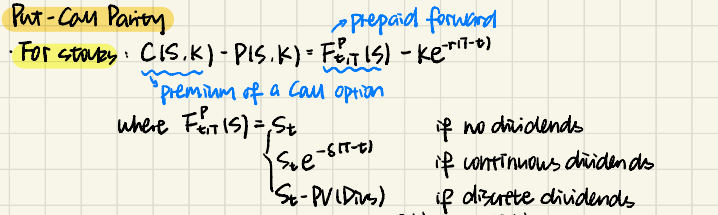 Put-Call Parity
prepaid forward
· For stocks: C(S,K) - P(S,K) = F^P_{t,T}(S) - Ke^{-r(T-t)}
premium of a call option
where F^P_{t,T}(S) = { S_t if no dividends
S_t e^{-δ(T-t)} if continuous dividends
S_t - PV(Divs) if discrete dividends